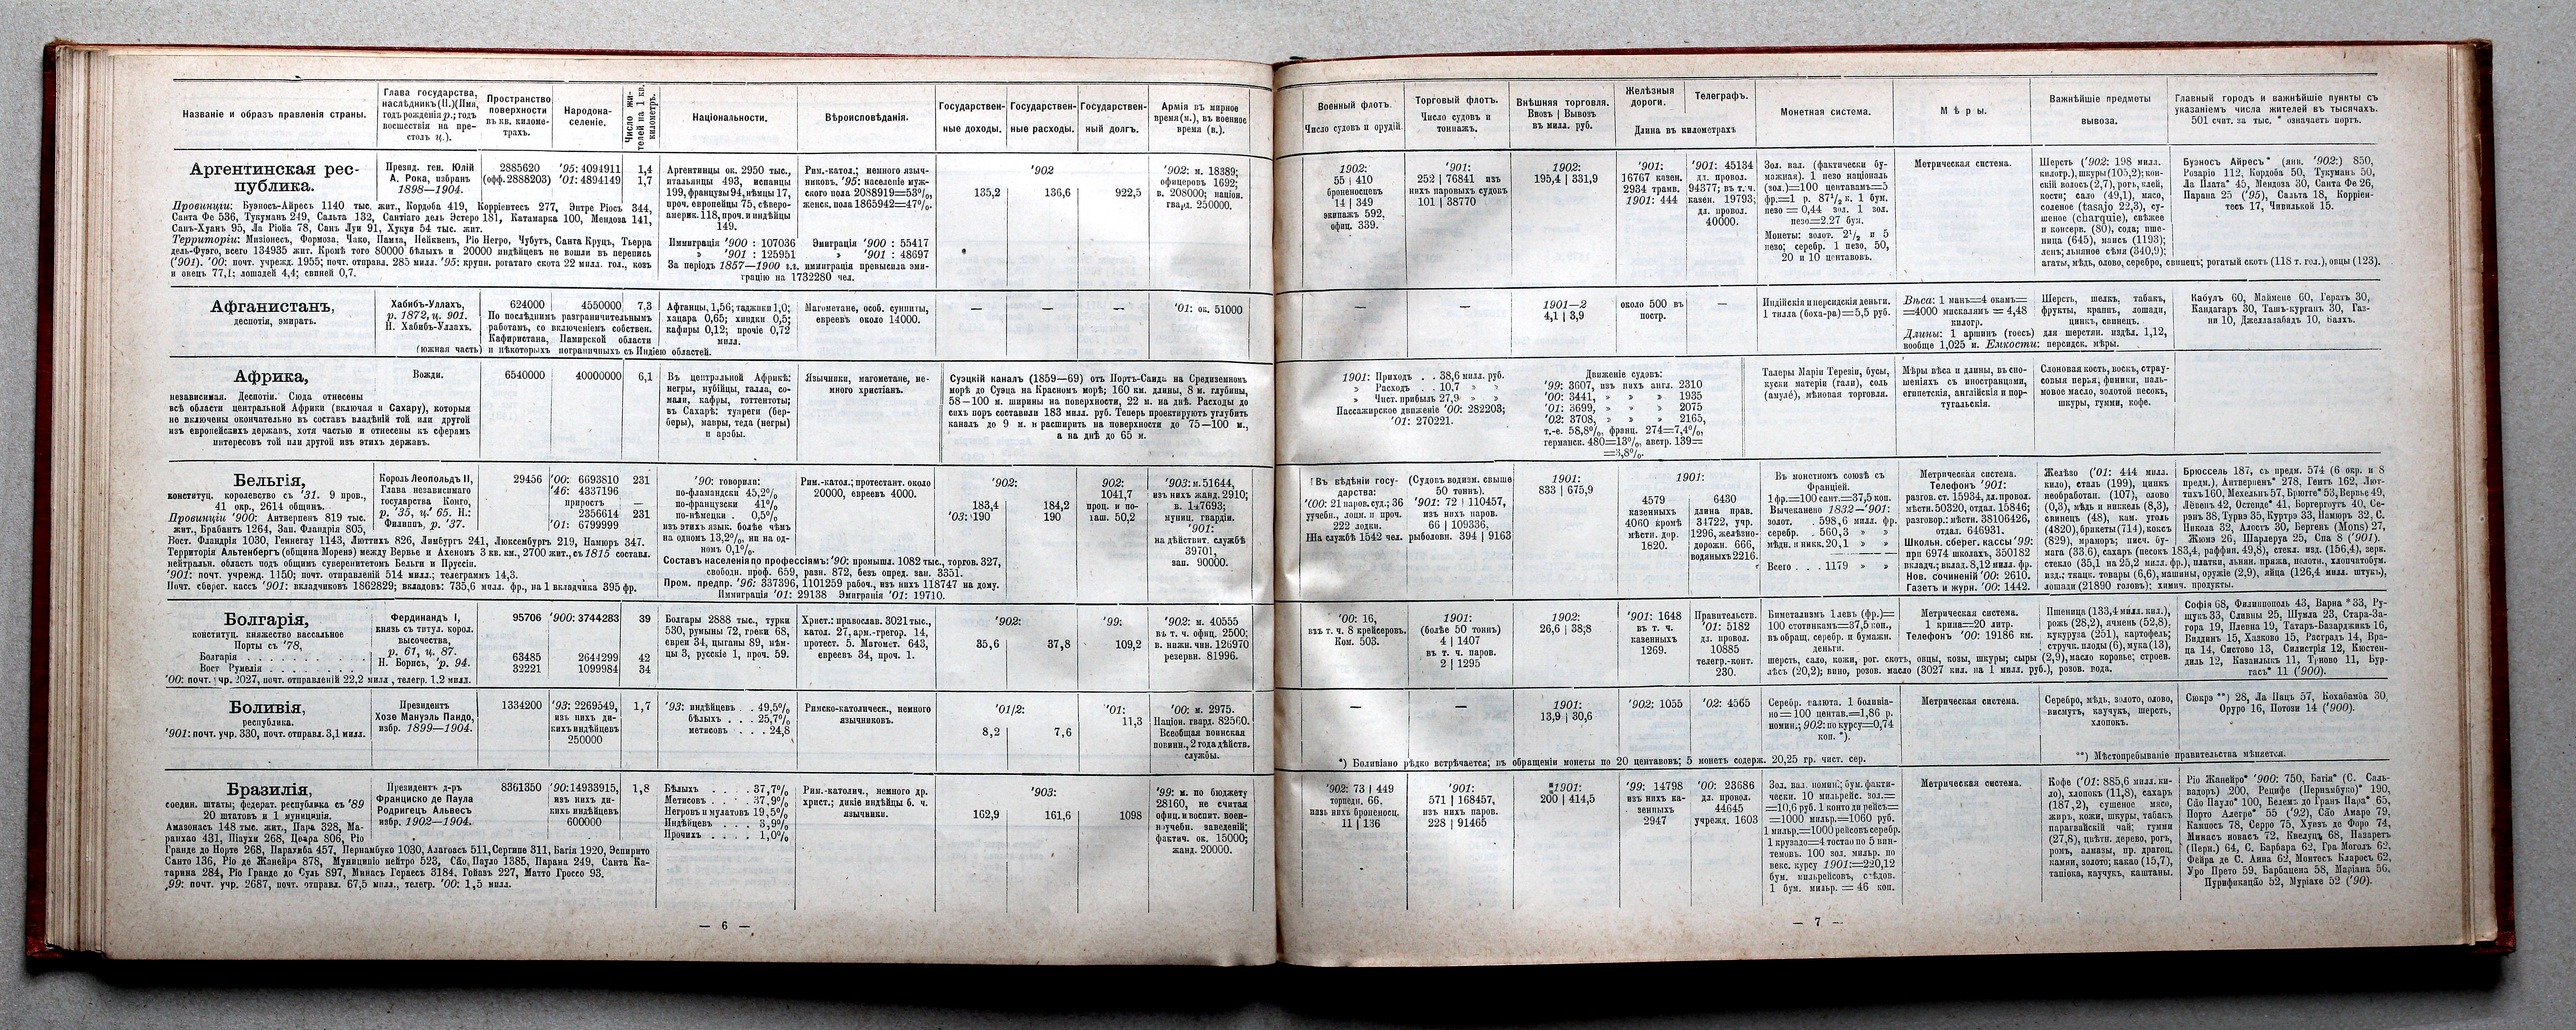 Названіе и образъ правленія страны.
Глава государства,
наслѣдникъ (Н.) (Имя,
годъ рожденія р.; годъ
восшествія на пре-
столъ ц.).
Пространство
поверхности
въ кв. киломе-
трахъ.
Народона-
селеніе.
Число жи-
телей на 1 кв.
километръ.
Національности.
Вѣроисповѣданія.
Государствен-
ные доходы.
Государствен-
ные расходы.
Государствен-
ный долгъ.
Армія въ мирное
время (м.), въ военное
время (в.).
Аргентинская рес-
публика.
Презид. ген. Юлій
А. Рока, избранъ
1898—1904.
2885620
(офф. 2888203)
'95: 4094911
'01: 4894149
1,4
1,7
Аргентинцы ок. 2950 тыс.,
итальянцы 493, испанцы
199, французы 94, нѣмцы 17,
проч. европейцы 75, сѣверо-
америк. 118, проч. и индѣйцы
149.
Рим.-катол.; немного языч-
никовъ. '95: населеніе муж-
ского пола 2088919=53%,
женск. пола 1865942=47%.
'902
135,2
136,6
922,5
'902: м. 18389;
офицеровъ 1692;
в. 208000; націон.
гвард. 250000.
Провинціи: Буэносъ-Айресъ 1140 тыс. жит., Кордоба 419, Корріентесъ 277, Энтре Ріосъ 344,
Санта Фе 536, Тукуманъ 249, Сальта 132, Сантіаго дель Эстеро 181, Катамарка 100, Мендоза 141,
Санъ-Хуанъ 95, Ла Ріойа 78, Санъ Луи 91, Хухуи 54 тыс. жит.
Территоріи: Мизіонесъ, Формоза, Чако, Пампа, Нейквенъ, Ріо Негро, Чубутъ, Санта Круцъ, Тьерра
дель-Фуэго, всего 134935 жит. Кромѣ того 80000 бѣлыхъ и 20000 индѣйцевъ не вошли въ перепись
('901). '00: почт. учрежд. 1955; почт. отправл. 285 милл. '95: крупн. рогатаго скота 22 милл. гол., козъ
и овецъ 77,1; лошадей 4,4; свиней 0,7.
Иммиграція '900 : 107036 Эмиграція '900 : 55417
» '901 : 125951 » '901 : 48697
За періодъ 1857—1900 г.г. иммиграція превысила эми-
грацію на 1732280 чел.
Афганистанъ,
деспотія, эмиратъ.
Хабибъ-Уллахъ,
р. 1872, ц. 901.
Н. Хабибъ-Уллахъ.
624000
4550000
7,3
По послѣднимъ разграничительнымъ
работамъ, со включеніемъ собствен.
Кафиристана, Памирской области
(южная часть) и нѣкоторыхъ пограничныхъ съ Индіею областей.
Афганцы, 1,56; таджики 1,0;
хацара 0,65; хиндки 0,5;
кафиры 0,12; прочіе 0,72
милл.
Магометане, особ. сунниты,
евреевъ около 14000.
—
—
—
'01: ок. 51000
Африка,
независимая. Деспотіи. Сюда отнесены
всѣ области центральной Африки (включая и Сахару), которыя
не включены окончательно въ составъ владѣній той или другой
изъ европейскихъ державъ, хотя частью и отнесены къ сферамъ
интересовъ той или другой изъ этихъ державъ.
Вожди.
6540000
40000000
6,1
Въ центральной Африкѣ:
негры, нубійцы, галла, со-
мали, кафры, готтентоты;
въ Сахарѣ: туареги (бер-
беры), мавры, теда (негры)
и арабы.
Язычники, магометане, не-
много христіанъ.
Суэцкій каналъ (1859—69) отъ Портъ-Саида на Средиземномъ
морѣ до Суэца на Красномъ морѣ; 160 км. длины, 8 м. глубины,
58—100 м. ширины на поверхности, 22 м. на днѣ. Расходы до
сихъ поръ составили 183 милл. руб. Теперь проектируютъ углубить
каналъ до 9 м. и расширить на поверхности до 75—100 м.,
а на днѣ до 65 м.
Бельгія,
конституц. королевство съ '31. 9 пров.,
41 окр., 2614 общинъ.
Король Леопольдъ II,
Глава независимаго
государства Конго,
р. '35, ц. '65. Н.:
Филиппъ, р. '37.
29456
'00: 6693810
'46: 4337196
приростъ
2356614
'01: 6799999
231
231
'90: говорили:
по-фламандски 45,2%
по-французски 41%
по-нѣмецки . 0,5%
изъ этихъ язык. болѣе чѣмъ
на одномъ 13,2%, ни на од-
номъ 0,1%.
Рим.-катол.; протестант. около
20000, евреевъ 4000.
'902:
183,4
'03: 190
184,2
190
902:
1041,7
проц. и по-
гаш. 50,2
'903: м. 51644,
изъ нихъ жанд. 2910;
в. 147693;
муниц. гвардіи.
'901:
на дѣйствит. службѣ
39701,
зап. 90000.
Провинціи '900: Антверпенъ 819 тыс.
жит., Брабантъ 1264, Зап. Фландрія 805,
Вост. Фландрія 1030, Геннегау 1143, Люттихъ 826, Лимбургъ 241, Люксембургъ 219, Намюръ 347.
Территорія Альтенбергъ (община Моренэ) между Вервье и Ахеномъ 3 кв. км., 2700 жит., съ 1815 составл.
нейтральн. область подъ общимъ суверенитетомъ Бельгіи и Пруссіи.
'901: почт. учрежд. 1150; почт. отправленій 514 милл.; телеграммъ 14,3.
Почт. сберег. кассъ '901: вкладчиковъ 1862829; вкладовъ: 735,6 милл. фр., на 1 вкладчика 395 фр.
Составъ населенія по профессіямъ: '90: промышл. 1082 тыс., торговл. 327,
свободн. проф. 659, разн. 872, безъ опред. зан. 3351.
Пром. предпр. '96: 337396, 1101259 рабоч., изъ нихъ 118747 на дому.
Иммиграція '01: 29138 Эмиграція '01: 19710.
Болгарія,
конституц. княжество вассальное
Порты съ '78,
Болгарія . . . . . . . . . .
Вост Румелія . . . . . . . .
Фердинандъ I,
князь съ титул. корол.
высочества,
р. 61, ц. 87.
Н. Борисъ, 'р. 94.
95706
63485
32221
'900: 3744283
2644299
1099984
39
42
34
Болгары 2888 тыс., турки
530, румыны 72, греки 68,
евреи 34, цыганы 89, нѣм
цы 3, русскіе 1, проч. 59.
Христ.: православ. 3021 тыс.,
катол. 27, арм.-грегор. 14,
протест. 5. Магомет. 643,
евреевъ 34, проч. 1.
'902:
35,6
37,8
'99:
109,2
'902: м. 40555
въ т. ч. офиц. 2500;
в. нижн. чин. 126970
резервн. 81996.
'00: почт. учр. 2027, почт. отправленій 22,2 милл., телегр. 1.2 милл.
Боливія,
республика.
'901: почт. учр. 330, почт. отправл. 3,1 милл.
Президентъ
Хозе Мануэль Пандо,
избр. 1899—1904.
1334200
'93: 2269549,
изъ нихъ ди-
кихъ индѣйцевъ
250000
1,7
'93: индѣйцевъ . 49,5%
бѣлыхъ . . . 25,7%
метисовъ . . . 24,8
Римско-католическ., немного
язычниковъ.
'01/2:
8,2
7,6
'01:
11,3
'00: м. 2975.
Націон. гвард. 82560.
Всеобщая воинская
повинн., 2 года дѣйств.
службы.
Бразилія,
соедин. штаты; федерат. республика съ '89
20 штатовъ и 1 муниципія.
Президентъ д-ръ
Франциско де Паула
Родригецъ Альвесъ
избр. 1902—1904.
8361350
'90: 14933915,
изъ нихъ ди-
кихъ индѣйцевъ
600000
1,8
Бѣлыхъ . . . . 37,7%
Метисовъ . . . 37,9%
Негровъ и мулатовъ 19,5%
Индѣйцевъ . . . 3,9%
Прочихъ . . . . 1,0%
Рим.-католич., немного др.
христ.; дикіе индѣйцы б. ч.
язычники.
'903:
162,9
161,6
1098
'99: м. по бюджету
28160, не считая
офиц. и воспит. воен-
но-учебн. заведеній;
фактич. ок. 15000;
жанд. 20000.
Амазонасъ 148 тыс. жит., Пара 328, Ма-
ранхао 431, Піаухи 268, Цеара 806, Ріо
Гранде до Норте 268, Парахиба 457, Пернамбуко 1030, Алагоасъ 511, Сергипе 311, Багія 1920, Эспирито
Санто 136, Ріо де Жанейра 878, Муниципіо нейтро 523, Сао, Пауло 1385, Парана 249, Санта Ка-
тарина 284, Ріо Гранде до Суль 897, Минасъ Гераесъ 3184. Гойазъ 227, Матто Гроссо 93.
,99: почт. учр. 2687, почт. отправл. 67,5 милл., телегр. '00: 1,5 милл.
— 6 —
Военный флотъ.
Число судовъ и орудій.
Торговый флотъ.
Число судовъ и
тоннажъ.
Внѣшняя торговля.
Ввозъ | Вывозъ
въ милл. руб.
Желѣзныя
дороги.
Телеграфъ.
Длина въ километрахъ
Монетная система.
Мѣры.
Важнѣйшіе предметы
вывоза.
Главный городъ и важнѣйшіе пункты съ
указаніемъ числа жителей въ тысячахъ.
501 счит. за тыс. * означаетъ портъ.
1902:
55 | 410
броненосцевъ
14 | 349
экипажъ 592,
офиц. 339.
'901:
252 | 76841 изъ
нихъ паровыхъ судовъ
101 | 38770
1902:
195,4 | 331,9
'901:
16767 казен.
2934 трамв.
1901: 444
'901: 45134
дл. провол.
94377; въ т. ч.
казен. 19793;
дл. провол.
40000.
Зол. вал. (фактически бу-
мажная). 1 пезо національ
(зол.)=100 центавамъ=5
фр.=1 р. 87½ к. 1 бум.
пезо = 0,44 зол. 1 зол.
пезо=2.27 бум.
Монеты: золот. 2½ и 5
пезо; серебр. 1 пезо, 50,
20 и 10 центавовъ.
Метрическая система.
Шерсть ('902: 198 милл.
килогр.), шкуры (105,2); кон-
скій волосъ (2,7), рогъ, клей,
кости; сало (49,1), мясо,
соленое (tasajo 22,3), су-
шеное (charquie), свѣжее
и консерв. (80), сода; пше-
ница (645), маисъ (1193);
ленъ; льняное сѣмя (340,9);
агаты, мѣдь, олово, серебро, свинецъ; рогатый скотъ (118 т. гол.), овцы (123).
Буэносъ Айресъ* (янв. '902:) 850,
Розаріо 112, Кордоба 50, Тукуманъ 50,
Ла Плата* 45, Мендоза 30, Санта Фе 26,
Парана 25 ('95), Сальта 18, Корріен-
тесъ 17, Чивилькой 15.
—
—
1901—2
4,1 | 3,9
около 500 въ
постр.
—
Индійскія и персидскія деньги.
1 тилла (боха-ра)=5,5 руб.
Вѣса: 1 манъ=4 окамъ=
=4000 мискалямъ = 4,48
килогр.
Длины: 1 аршинъ (гоесъ) для шерстян. издѣл. 1,12,
вообще 1,025 м. Емкости: персидск. мѣры.
Шерсть, шелкъ, табакъ,
фрукты, краппъ, лошади,
цинкъ, свинецъ.
Кабулъ 60, Маймене 60, Гератъ 30,
Кандагаръ 30, Ташъ-курганъ 30, Газ-
ни 10, Джеллалабадъ 10, Балхъ.
1901: Приходъ . . 38,6 милл. руб.
» Расходъ . . 10,7 » »
» Чист. прибыль 27,9 » »
Пассажирское движеніе '00: 282203;
'01: 270221.
Движеніе судовъ:
'99: 3607, изъ нихъ англ. 2310
'00: 3441, » » » 1935
'01: 3699, » » » 2075
'02: 3708, » » » 2165,
т.-е. 58,8%, франц. 274=7,4%,
германск. 480=13%, австр. 139=
=3,8%.
Талеры Маріи Терезіи, бусы,
куски матеріи (гали), соль
(амулё), мѣновая торговля.
Мѣры вѣса и длины, въ сно-
шеніяхъ съ иностранцами,
египетскія, англійскія и пор-
тугальскія.
Слоновая кость, воскъ, страу-
совыя перья, финики, паль-
мовое масло, золотой песокъ,
шкуры, гумми, кофе.
Въ вѣдѣніи госу-
дарства:
'00: 21 паров. суд.; 36
учебн., лоцм. и проч.
222 лодки.
На службѣ 1542 чел.
(Судовъ водизм. свыше
50 тоннъ).
'901: 72 | 110457,
изъ нихъ паров.
66 | 109336,
рыболовн. 394 | 9163
1901:
833 | 675,9
1901:
4579
казенныхъ
4060 кромѣ
мѣстн. дор.
1820.
6430
длина прав.
34722, учр.
1296, желѣзно-
дорожн. 666,
водяныхъ 2216.
Въ монетномъ союзѣ съ
Франціей.
1 фр.=100 сант.=37,5 коп.
Вычеканено 1832—'901:
золот. . 598,6 милл. фр.
серебр. . 560,3 » »
мѣдн. и никк. 20,1 » »
Всего . . . 1179 » »
Метрическая система.
Телефонъ '901:
разгов. ст. 15934, дл. провол.
мѣстн. 50320, отдал. 15846;
разговор.: мѣстн. 38106426,
отдал. 646931.
Школьн. сберег. кассы '99:
при 6974 школахъ, 350182
вкладч.; вклад. 8,12 милл. фр.
Нов. сочиненій '00: 2610.
Газетъ и журн. '00: 1442.
Желѣзо ('01: 444 милл.
кило), сталь (199), цинкъ
необработан. (107), олово
(0,3), мѣдь и никкель (8,3),
свинецъ (48), кам. уголь
(4820), брикеты (714), коксъ
(829), мраморъ; писч. бу-
мага (33,6), сахаръ (песокъ 183,4, раффин. 49,8), стекл. изд. (156,4), зерк.
стекло (35,1 на 25,2 милл. фр.), платки, льнян. пряжа, полотн., хлопчатобум.
изд.: ткацк. товары (6,6), машины, оружіе (2,9), яйца (126,4 милл. штукъ),
лошади (21890 головъ); химич. продукты.
Брюссель 187, съ предм. 574 (6 окр. и 8
предм.), Антверпенъ* 278, Гентъ 162, Лют-
тихъ 160, Мехельнъ 57, Брюгге* 53, Вервье 49,
Лёвенъ 42, Остенде* 41, Боргергоутъ 40, Се-
рэнъ 38, Турнэ 35, Куртрэ 33, Намюръ 32, С.
Никола 32, Алостъ 30, Бергенъ (Mons) 27,
Жюмэ 26, Шарлеруа 25, Спа 8 ('901).
'00: 16,
въ т. ч. 8 крейсеровъ.
Ком. 503.
1901:
(болѣе 50 тоннъ)
4 | 1407
въ т. ч. паров.
2 | 1295
1902:
26,6 | 38;8
'901: 1648
въ т. ч.
казенныхъ
1269.
Правительств.
'01: 5182
дл. провол.
10885
телегр.-конт.
230.
Биметализмъ 1 левъ (фр.)=
100 стотинкамъ=37,5 коп.,
въ обращ. серебр. и бумажн.
деньги.
Метрическая система.
1 крина=20 литр.
Телефонъ '00: 19186 км.
Пшеница (133,4 милл. кил.),
рожь (28,2), ячмень (52,8),
кукуруза (251), картофель;
стручк. плоды (6), мука (13),
шерсть, сало, кожи, рог. скотъ, овцы, козы, шкуры; сыры (2,9), масло коровье; строев.
лѣсъ (20,2); вино, розов. масло (3027 кил. на 1 милл. руб.), розов. вода.
Софія 68, Филиппополь 43, Варна *33, Ру-
щукъ 33, Сливны 25, Шумла 23, Стара-За-
гора 19, Плевна 19, Татаръ-Базарджикъ 16,
Виддинъ 15, Хазково 15, Расградъ 14, Вра-
ца 14, Систово 13, Силистрія 12, Кюстен-
диль 12, Казанлыкъ 11, Трново 11, Бур-
гасъ* 11 ('900).
—
—
1901:
13,9 | 30,6
'902; 1055
'02: 4565
Серебр. валюта. 1 боливіа-
но=100 центав.=1,86 р.
номин.; 902: по курсу=0,74
коп. *).
Метрическая система.
Серебро, мѣдь, золото, олово,
висмутъ, каучукъ, шерсть,
хлопокъ.
Сюкрэ **) 28, Ла Пацъ 57, Кохабамба 30,
Оруро 16, Потози 14 ('900).
*) Боливіано рѣдко встрѣчается; въ обращеніи монеты по 20 центавовъ; 5 монетъ содерж. 20,25 гр. чист. сер.
**) Мѣстопребываніе правительства мѣняется.
'902: 73 | 449
торпедн. 66,
изъ нихъ броненосц.
11 | 136
'901:
571 | 168457,
изъ нихъ паров.
228 | 91465
1901:
200 | 414,5
'99: 14798
изъ нихъ ка-
зенныхъ
2947
'00: 23686
дл. провол.
44645
учрежд. 1603
Зол. вал. номин.; бум. факти-
чески. 10 мильрейс. зол.=
=10,6 руб. 1 конто ди рейсъ=
=1000 мильр.=1060 руб.
1 мильр.=1000 рейсовъ серебр.
1 крузадо=4 тостао по 5 вин-
темовъ. 100 зол. мильр. по
векс. курсу 1901:=220,12
бум. мильрейсовъ, слѣдов.
1 бум. мильр. = 46 коп.
Метрическая система.
Кофе ('01: 885,6 милл. ки-
ло), хлопокъ (11,8), сахаръ
(187,2), сушеное мясо,
жиръ, кожи, шкуры, табакъ
парагвайскій чай; гумми
(27,8), цвѣтн. дерево, рогъ,
ромъ, алмазы, пр. драгоц.
камни, золото; какао (15,7),
тапіока, каучукъ, каштаны.
Ріо Жанейро* '900: 750, Багія* (С. Саль-
вадоръ) 200, Рецифе (Пернамбуко)* 190,
Сао Пауло* 100, Белемъ до Гранъ Пара* 65,
Порто Алегре* 55 ('92), Сао Амаро 79,
Кампосъ 78, Серро 75, Хуизъ де Форо 74,
Минасъ новасъ 72, Квелуцъ 68, Назаретъ
(Перн.) 64, С. Барбара 62, Гра Моголъ 62,
Фейра де С. Анна 62, Монтесъ Кларосъ 62,
Уро Прето 59, Барбацена 58, Маріана 56,
Пурификацао 52, Муріахе 52 ('90).
— 7 —